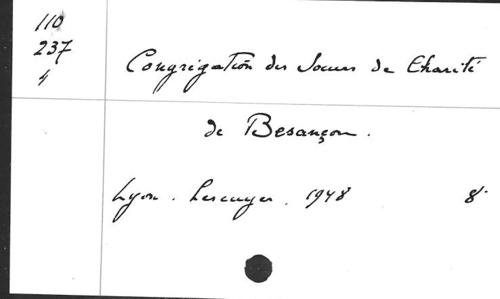 110
237
4
Congrégation des Soeurs de Charité
de Besançon.
Lyon. Lescuyer. 1948 8°